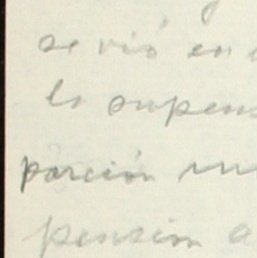 se vió en
lo supens
porción un
pension a